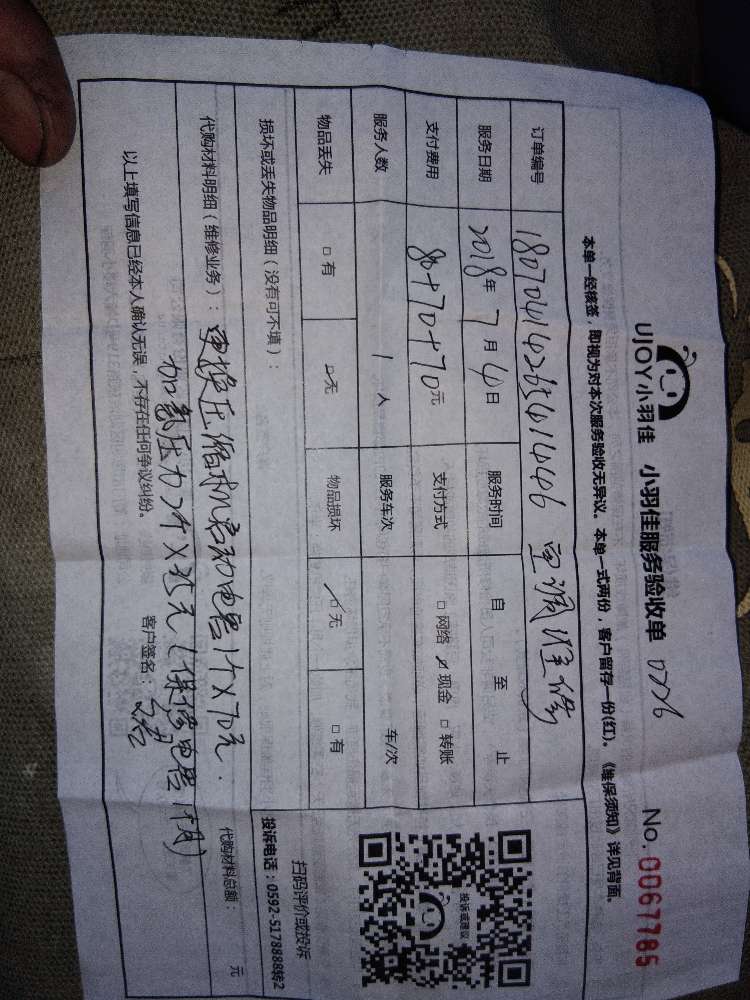 UJOY小羽佳 小羽佳服务验收单 0776 No. 0067785
本单一经核签，即视为对本次服务验收无异议。本单一式两份，客户留存一份(红)。《维保须知》详见背面。
订单编号 空调维修
服务日期 2018年 7月 4日 服务时间 自 至 止
支付费用 80+70+70元 支付方式 □ 网络 ☑ 现金 □ 转账
服务人数 1 人 服务车次 车/次
物品丢失 □ 有 ☑ 无 物品损坏 ☑ 无 □ 有
投诉或建议
扫码评价或投诉
投诉电话：0592-5178888转2
损坏或丢失物品明细（没有可不填）：
代购材料明细（维修业务）：更换压缩机启动电容1个×70元.
加氟压力2个×35元（保修电容1个月）
代购材料总额： 元
以上填写信息已经本人确认无误，不存在任何争议纠纷。 客户签名：